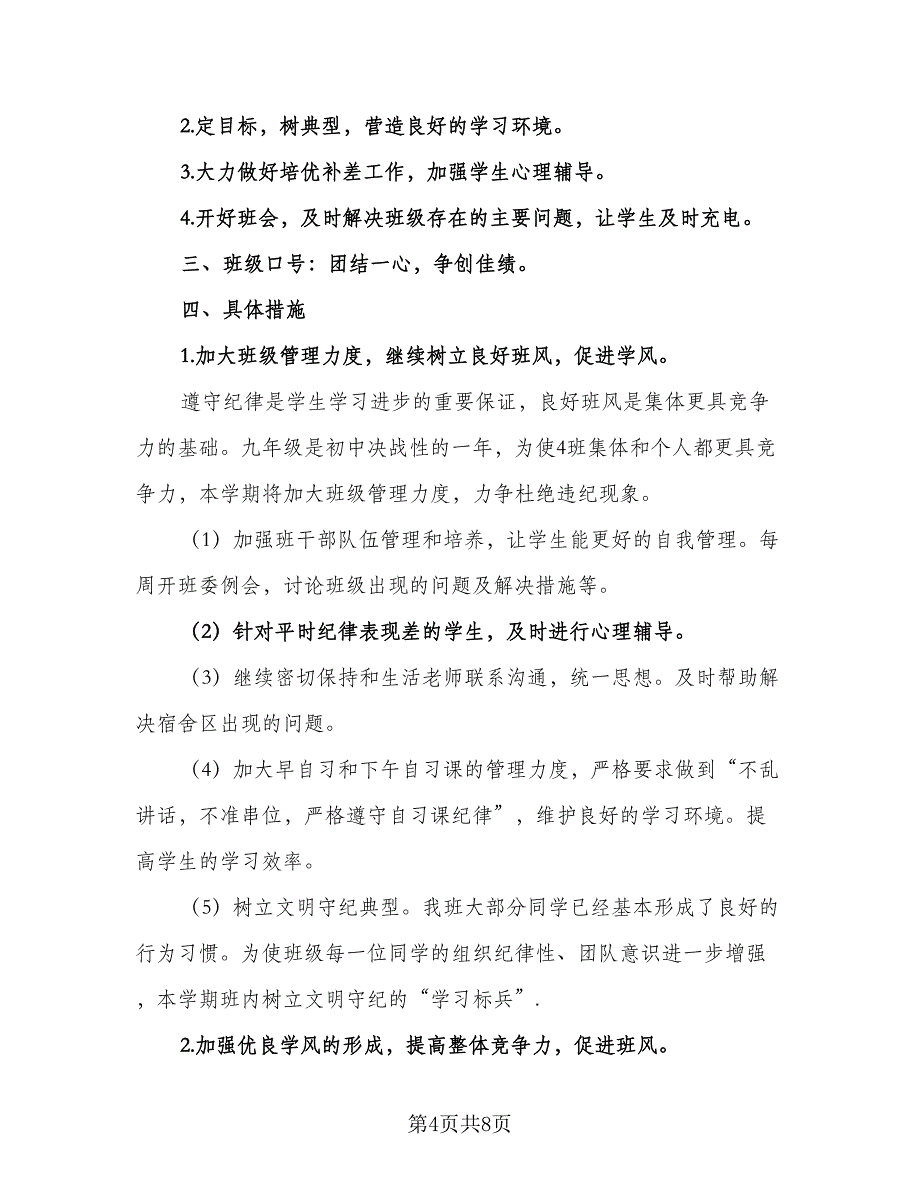 2.定目标，树典型，营造良好的学习环境。
3.大力做好培优补差工作，加强学生心理辅导。
4.开好班会，及时解决班级存在的主要问题，让学生及时充电。
三、班级口号：团结一心，争创佳绩。
四、具体措施
1.加大班级管理力度，继续树立良好班风，促进学风。
遵守纪律是学生学习进步的重要保证，良好班风是集体更具竞争
力的基础。九年级是初中决战性的一年，为使4班集体和个人都更具竞
争力，本学期将加大班级管理力度，力争杜绝违纪现象。
（1）加强班干部队伍管理和培养，让学生能更好的自我管理。每
周开班委例会，讨论班级出现的问题及解决措施等。
（2）针对平时纪律表现差的学生，及时进行心理辅导。
（3）继续密切保持和生活老师联系沟通，统一思想。及时帮助解
决宿舍区出现的问题。
（4）加大早自习和下午自习课的管理力度，严格要求做到“不乱
讲话，不准串位，严格遵守自习课纪律”，维护良好的学习环境。提
高学生的学习效率。
（5）树立文明守纪典型。我班大部分同学已经基本形成了良好的
行为习惯。为使班级每一位同学的组织纪律性、团队意识进一步增强
，本学期班内树立文明守纪的“学习标兵”.
2.加强优良学风的形成，提高整体竞争力，促进班风。
第4页共8页